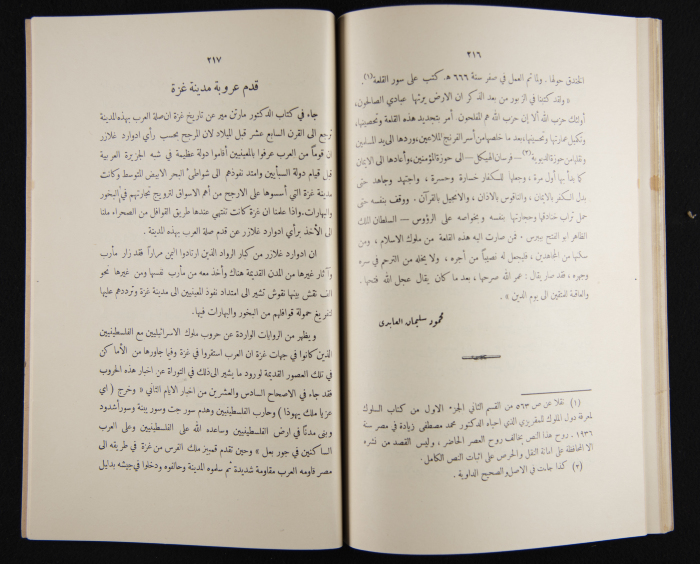 ٢١٦
الخندق حولها . ولما تم العمل في صفر سنة ٦٦٦ هـ كتب على سور القلعة(١).
« ولقد كتبنا في الزبور من بعد الذكر ان الارض يرثها عبادي الصالحون،
أولئك حزب الله ألا إن حزب الله هم المفلحون. أمر بتجديد هذه القلعة وتحصينها،
وتكميل عمارتها وتحسينها، بعد ما خلصها من أسر الفرنج الملاعين، وردها الى يد المسلمين
ونقلها من حوزة الديوية(٢) — فرسان الهيكل — الى حوزة المؤمنين، وأعادها الى الايمان
كما بدأ بها أول مرة ، وجعلها للكفار خسارة وحسرة ، واجتهد وجاهد حتى
بدل الكفر بالايمان ، والناقوس بالاذان ، والانجيل بالقرآن . ووقف بنفسه حتى
حمل تراب خنادقها وحجارتها بنفسه و بخواصه على الرؤوس — السلطان الملك
الظاهر ابو الفتح بيبرس . فمن صارت اليه هذه القلعة من ملوك الاسلام ، ومن
سكنها من المجاهدين ، فليجعل له نصيباً من أجره ، ولا يخله من الترحم في سره
وجهره ، فقد صار يقال: عمر الله صرحها ، بعد ما كان يقال عجل الله فتحها .
والعاقبة للمتقين الى يوم الدين » .
محمود سليمان العابدي
(١) نقلا عن ص ٥٦٣ من القسم الثاني الجزء الاول من كتاب السلوك
لمعرفة دول الملوك للمقريزي الذي احياه الدكتور محمد مصطفى زيادة في مصر سنة
١٩٣٦ . روح هذا النص يخالف روح العصر الحاضر ، وليس القصد من نشره
الا المحافظة على امانة النقل والحرص على اثبات النص الكامل .
(٢) كذا جاءت في الاصل والصحيح الداوية .
٢١٧
قدم عروبة مدينة غزة
جاء في كتاب الدكتور مارتن مير عن تاريخ غزة ان صلة العرب بهذه المدينة
ترجع الى القرن السابع عشر قبل الميلاد لان المرجح بحسب رأي ادوارد غلازر
ان قوماً من العرب عرفوا بالمعينيين أقاموا دولة عظيمة في شبه الجزيرة العربية
قبل قيام دولة السبأيين وامتد نفوذهم الى شواطىء البحر الابيض المتوسط وكانت
مدينة غزة التي أسسوها على الارجح من أهم الاسواق لترويج تجارتهم في البخور
والبهارات. واذا علمنا ان غزة كانت تنتهي عندها طريق القوافل من الصحراء ملنا
الى الأخذ برأي ادوارد غلازر عن قدم صلة العرب بهذه المدينة .
ان ادوارد غلازر من كبار الرواد الذين ارتادوا اليمن مراراً فقد زار مأرب
وآثار غيرها من المدن القديمة هناك وأخذ معه من مأرب نفسها ومن غيرها نحو
الف نقش بينها نقوش تشير الى امتداد نفوذ المعينيين الى مدينة غزة وترددهم عليها
لتفريغ حمولة قوافلهم من البخور والبهارات فيها.
و يظهر من الروايات الواردة عن حروب ملوك الاسرائيليين مع الفلسطينيين
الذين كانوا في جهات غزة ان العرب استقروا في غزة وفيما جاورها من الأماكن
في تلك العصور القديمة لورود ما يشير الى ذلك في التوراة عن اخبار هذه الحروب
فقد جاء في الاصحاح السادس والعشرين من اخبار الايام الثاني « وخرج ( اي
عزيا ملك يهوذا ) وحارب الفلسطينيين وهدم سور جت وسور يبنة وسور أشدود
وبنى مدناً في ارض الفلسطينيين وساعده الله على الفلسطينيين وعلى العرب
الساكنين في جور بعل » وحين تقدم قمبيز ملك الفرس من غزة في طريقه الى
مصر قاومه العرب مقاومة شديدة ثم سلموه المدينة وحالفوه ودخلوا في جيشه بدليل